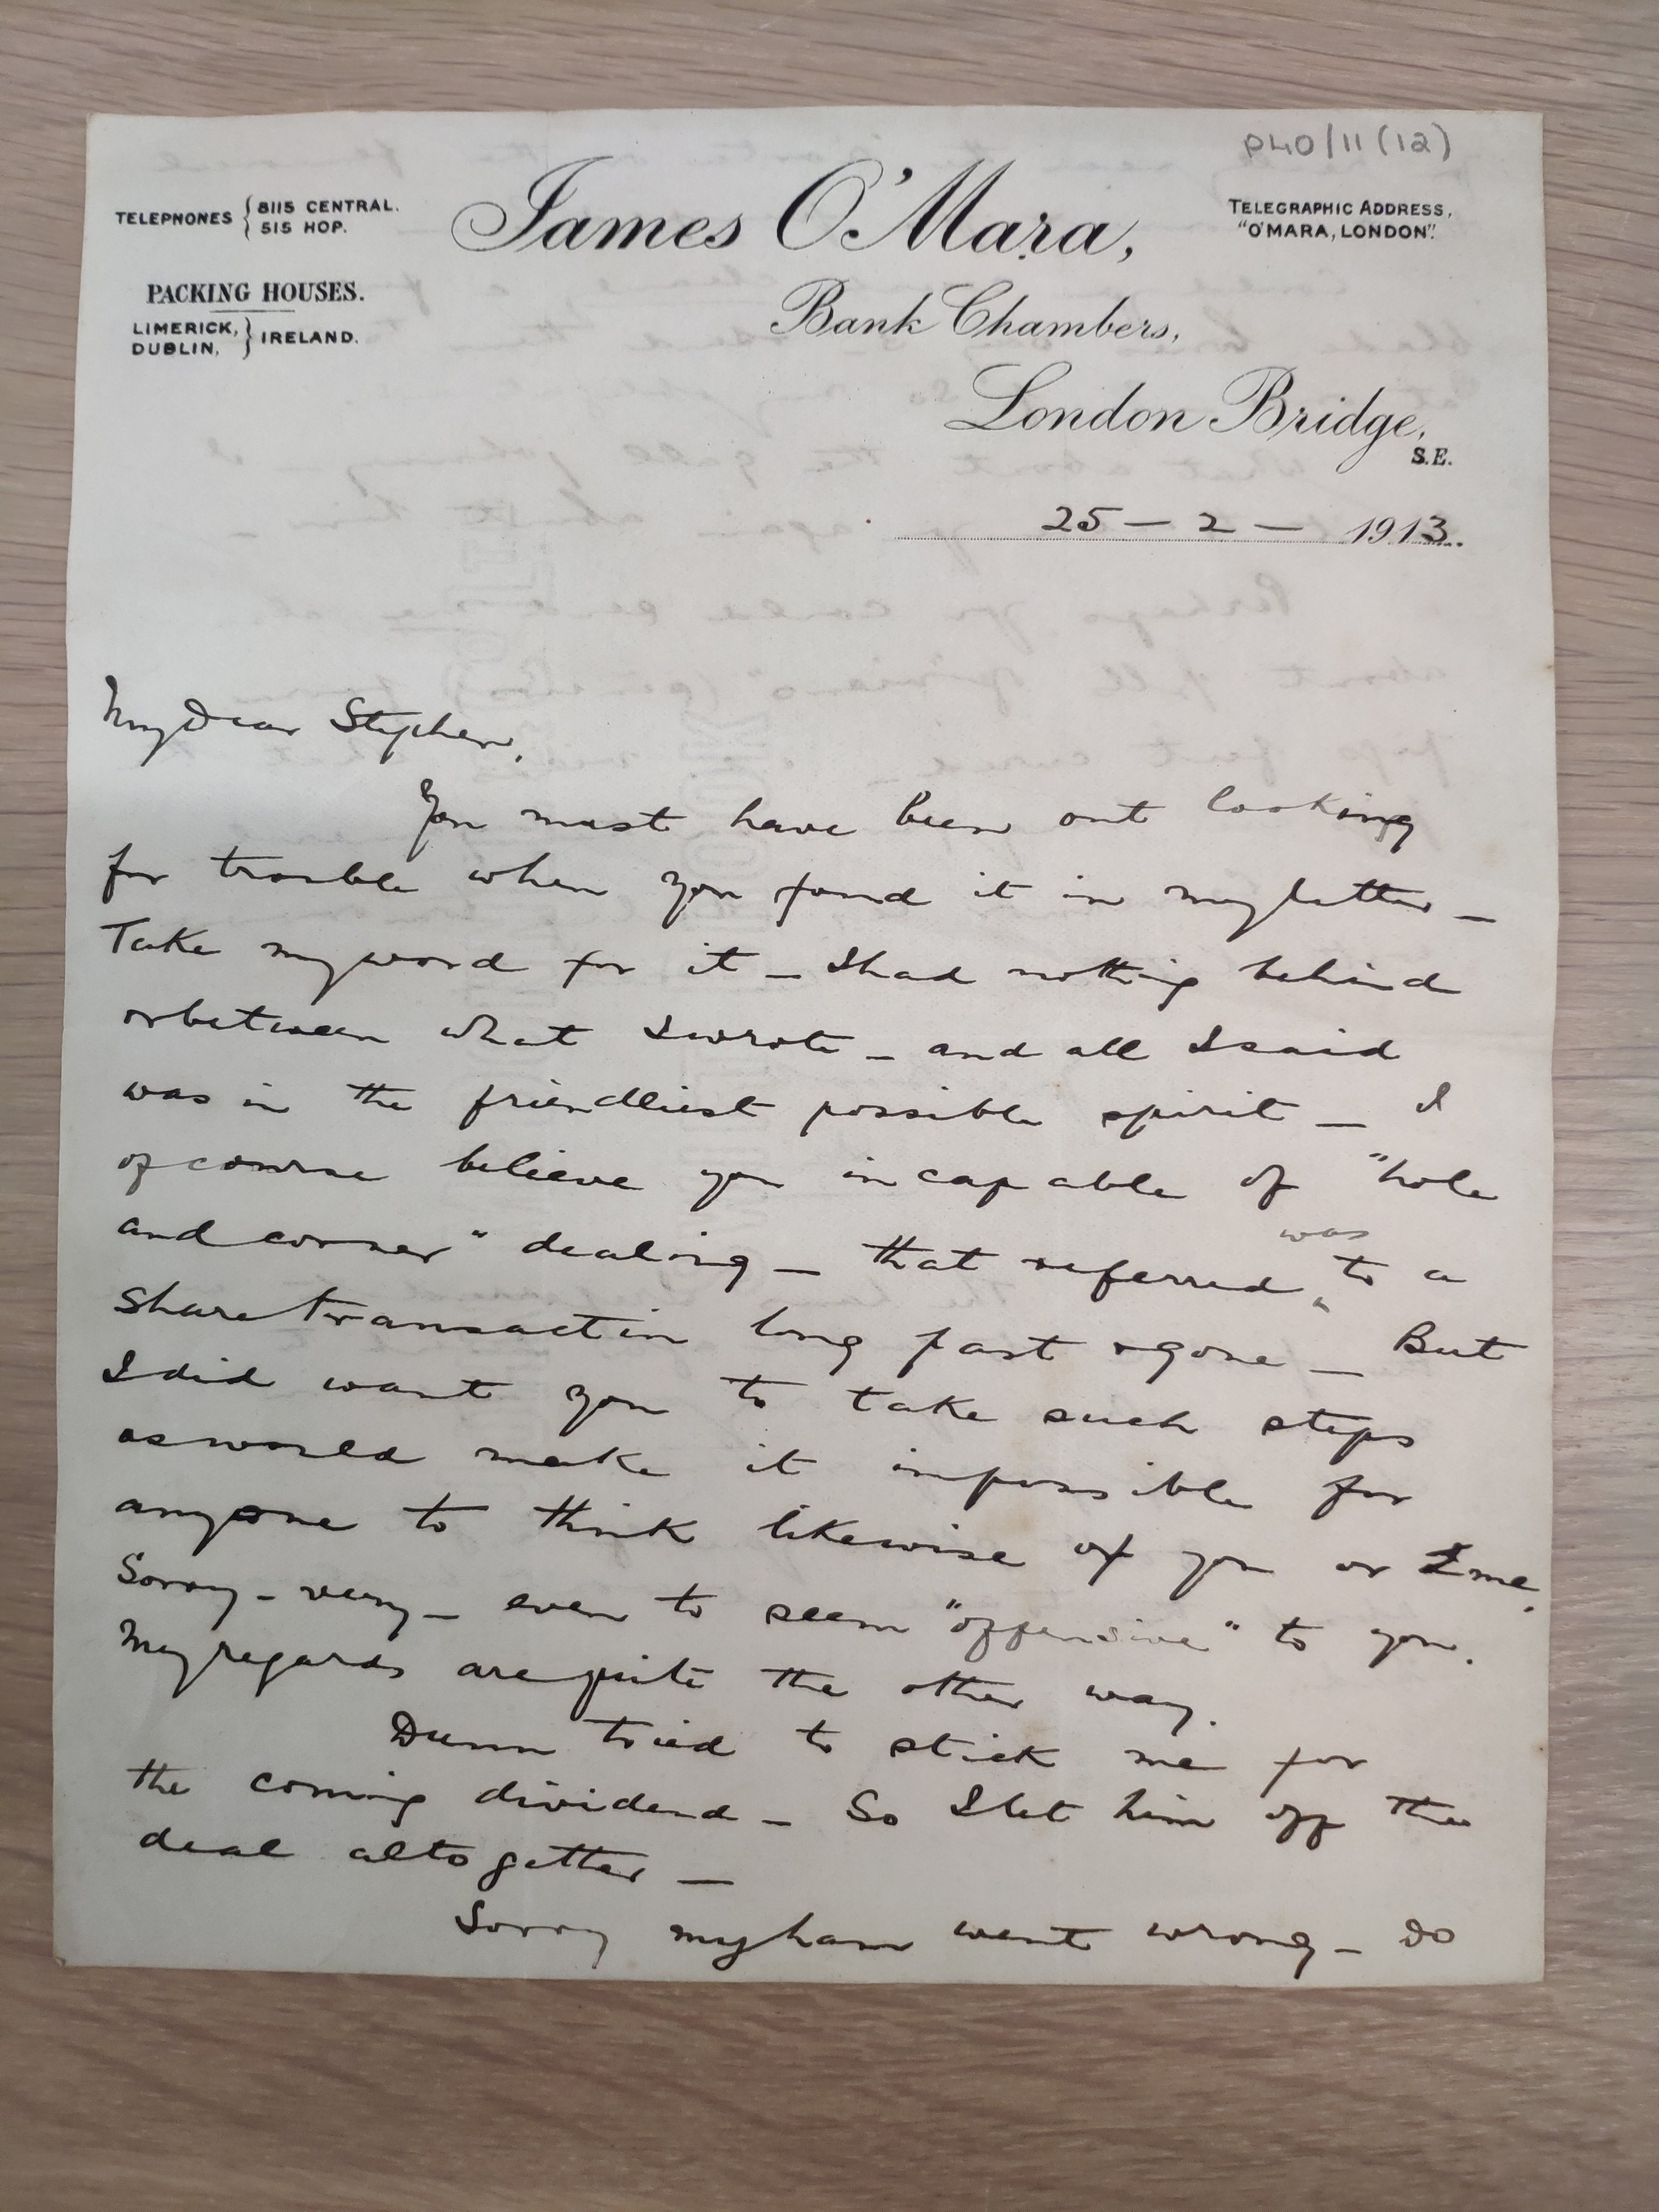 P40/11(12)
TELEPHONES { 8115 CENTRAL.
515 HOP.
James O'Mara,
TELEGRAPHIC ADDRESS,
"O'MARA, LONDON".
PACKING HOUSES.
LIMERICK,
DUBLIN, } IRELAND.
Bank Chambers,
London Bridge,
S.E.
25 – 2 – 1913.
My Dear Stephen,
You must have been out looking
for trouble when you found it in my letter –
Take my word for it – I had nothing behind
or between what I wrote – and all I said
was in the friendliest possible spirit – I
of course believe you incapable of "hole
and corner" dealing – that referred was to a
share transaction long past & gone – But
I did want you to take such steps
as would make it impossible for
anyone to think likewise of you or I me.
Sorry – very – even to seem "offensive" to you.
My regards are quite the other way.
Dunn tried to stick me for
the coming dividend – So I let him off the
deal altogether –
Sorry my ham went wrong – Do